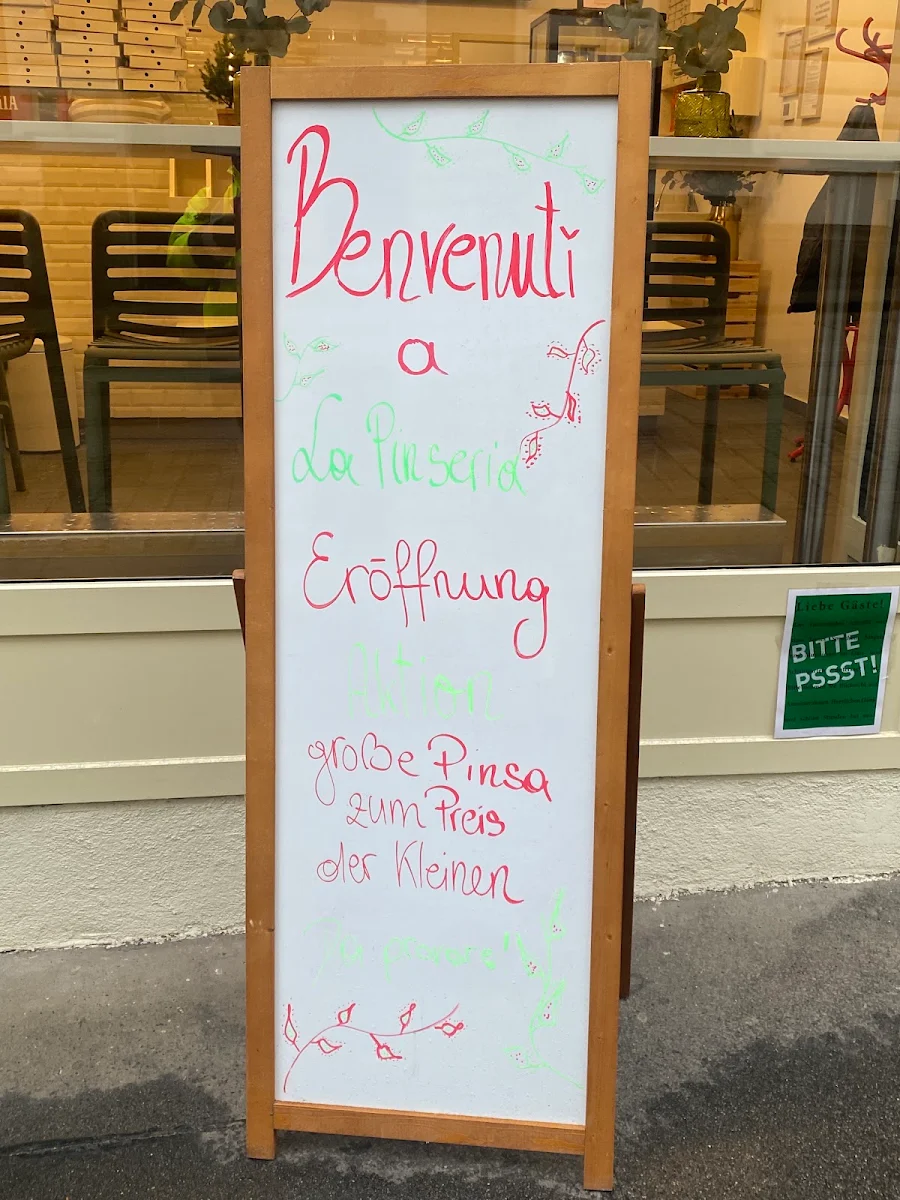 Benvenuti
a
La Pinseria
Eröffnung
Aktion
große Pinsa
zum Preis
der Kleinen
Liebe Gäste!
BITTE
PSSST!